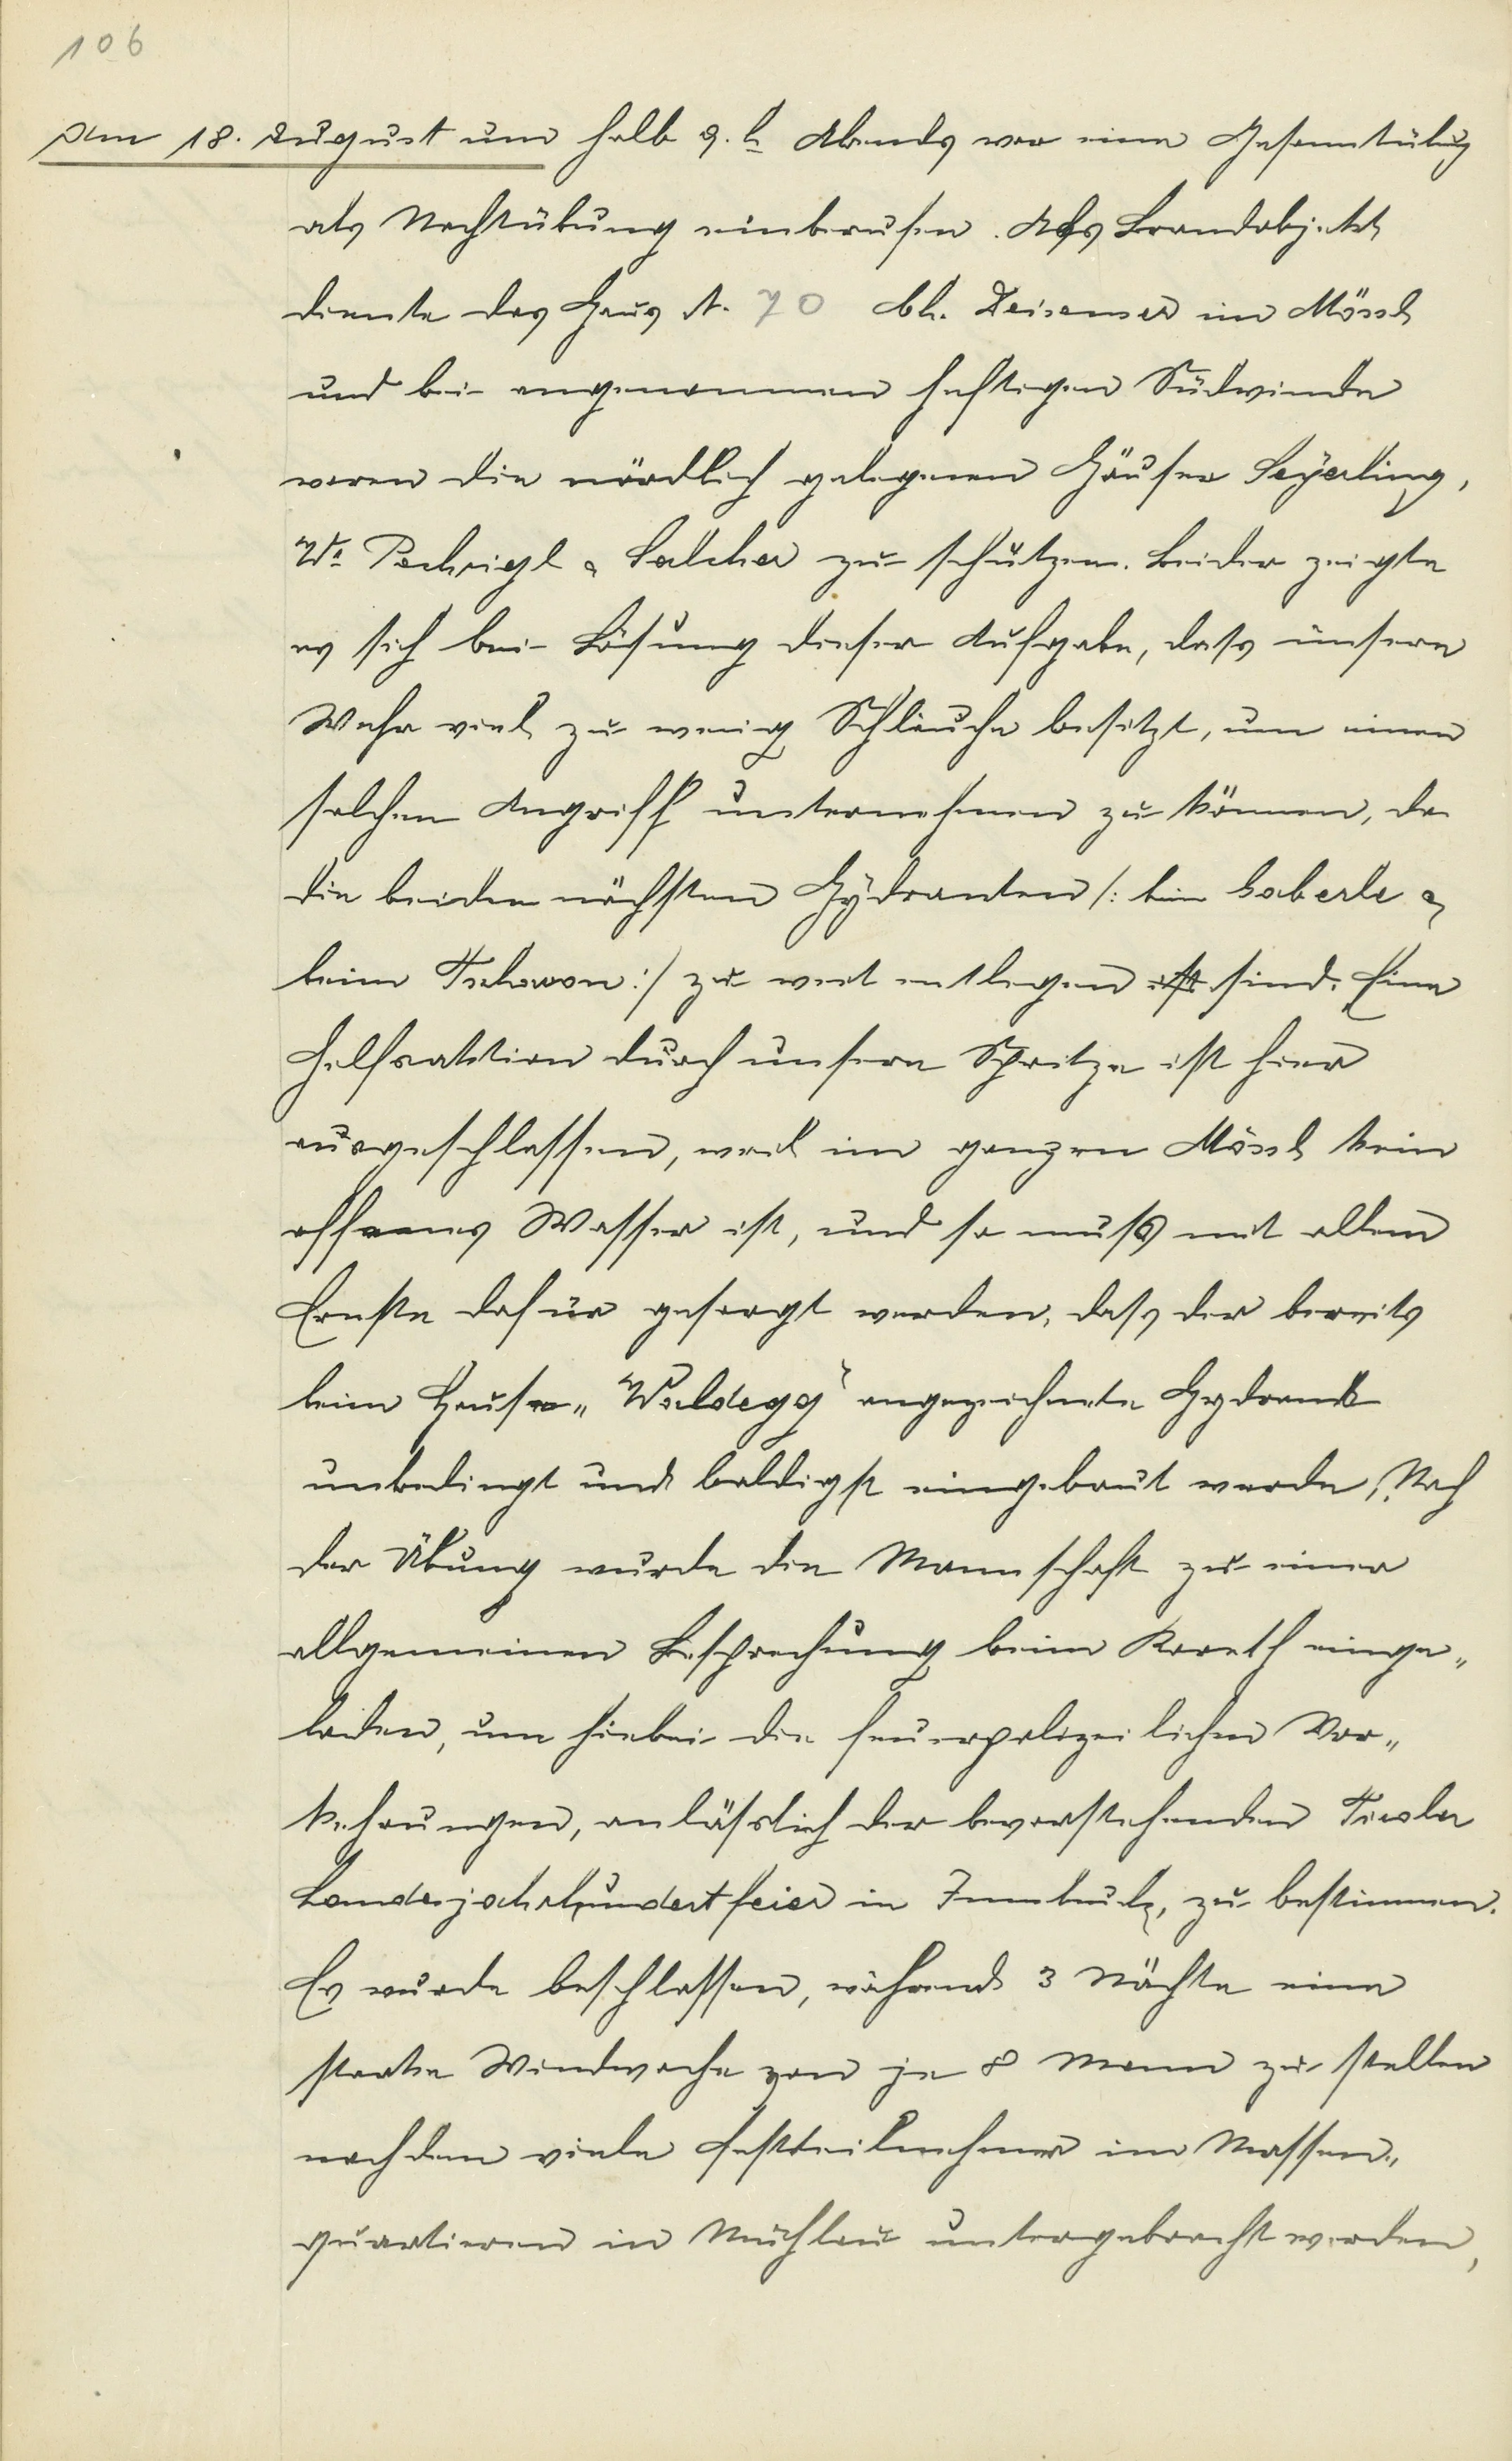 106
Am 18. August um halb 9. h Abends war eine Gesamtübung
als Nachtübung einberufen. Als Brandobjekt
diente das Haus N. 70 bh. Deisemer im Mössl
und bei angenommen heftigen Südwinde
waren die nördlich gelegenen Häuser Seÿerling,
We Pechrigl & Salcher zu schützen. Leider zeigte
es sich bei Lösung dieser Aufgabe, dass unsere
Wehr viel zu wenig Schläuche besitzt, um einen
solchen Angriff unternehmen zu können, da
die beiden nächsten Hÿdranten /: beim Haberle &
beim Tschswon :/ zu weit entlegen ist sind. Eine
Hilfsaktion durch unsere Spritze ist hier
ausgeschlossen, weil im ganzen Mössl kein
offenes Wasser ist, und so muß mit allem
Ernste dafür gesorgt werden, dass der bereits
beim Hause „Waldegg" angezeichnete Hydrant
unbedingt und baldigst eingebaut werde. Nach
der Übung wurde die Mannschaft zu einer
allgemeinen Besprechung beim Koreth einge„
laden, um hiebei die feuerpolizeilichen Vor„
kehrungen, anlässlich der bevorstehenden Tiroler
Landesjahrhundertfeier in Innsbruck, zu bestimmen.
Es wurde beschlossen, während 3 Nächte eine
starke Windwache von je 8 Mann zu stellen
nachdem viele Festteilnehmer im Massen„
quartieren in Mühlau untergebracht werden,